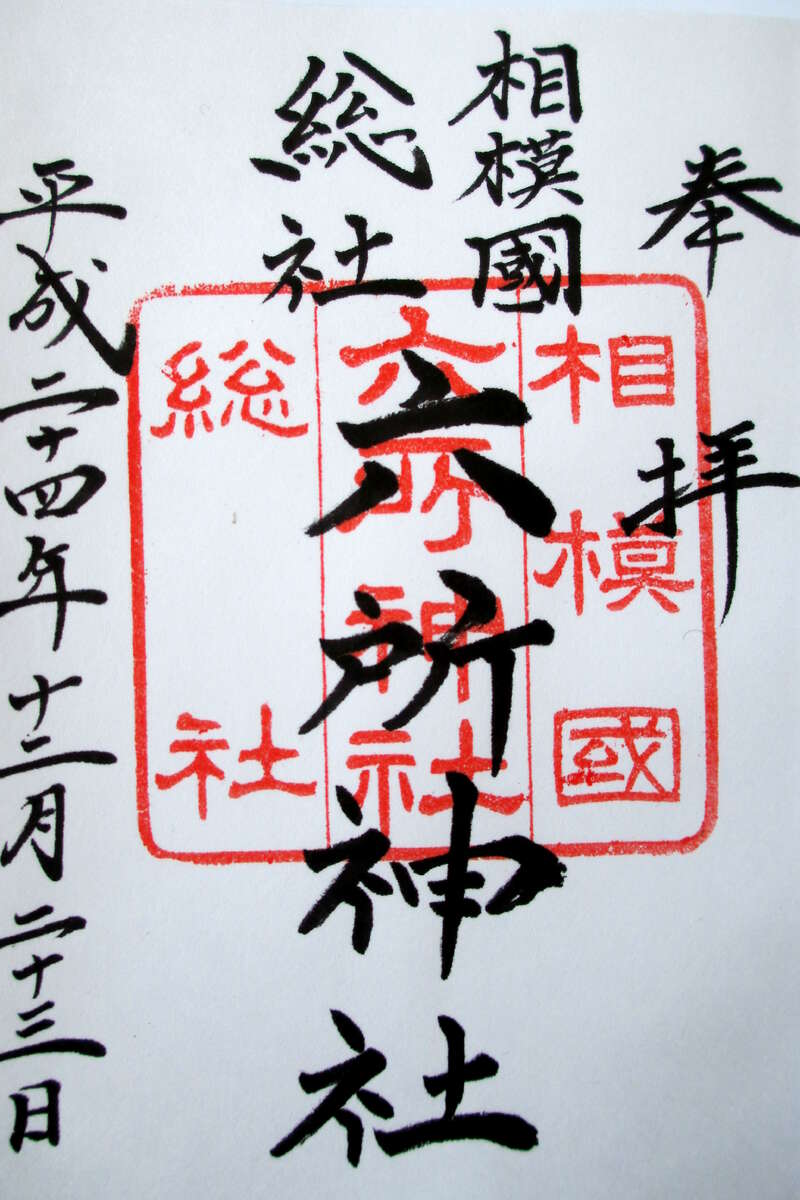 奉拝
相模國
総社
六所神社
平成二十四年十二月二十三日
相模國
六所神社
総社